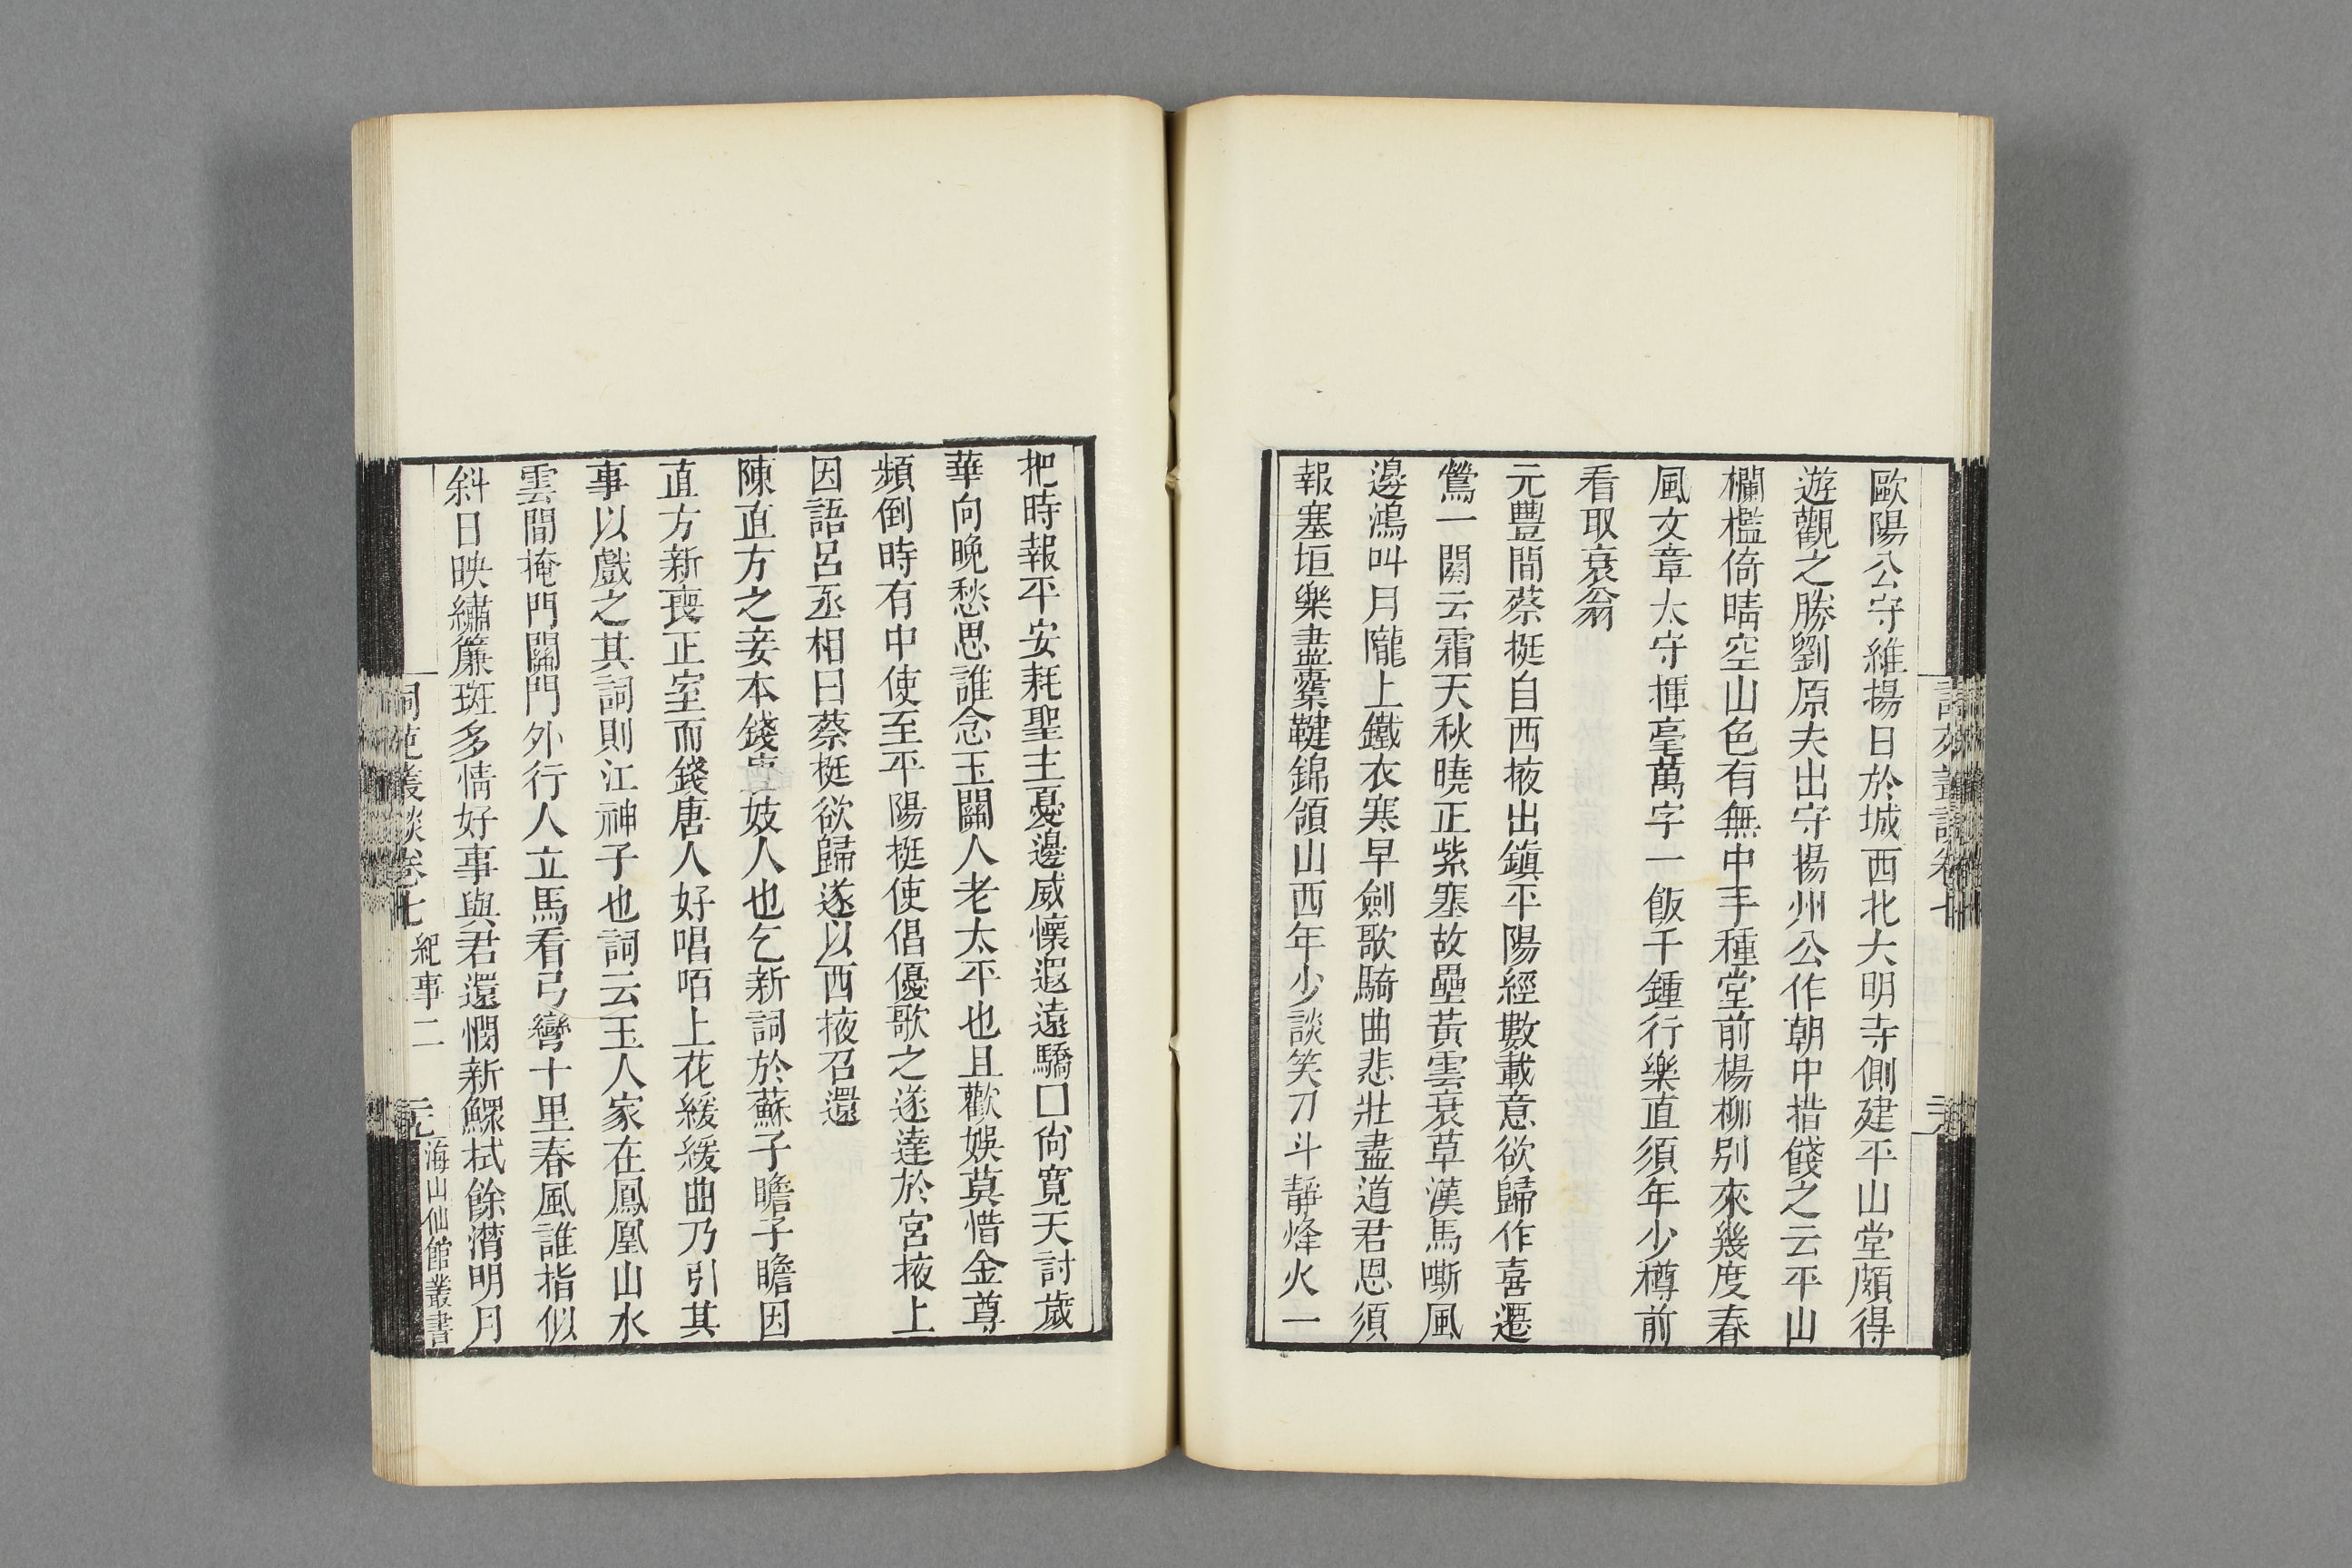 歐陽公守維揚日於城西北大明寺側建平山堂頗得
遊觀之勝劉原夫出守揚州公作朝中措餞之云平山
欄檻倚晴空山色有無中手種堂前楊柳别來幾度春
風文章太守揮毫萬字一飯千鍾行樂直須年少樽前
看取衰翁
元豐間蔡挺自西掖出鎮平陽經數載意欲歸作喜遷
鶯一闋云霜天秋曉正紫塞故壘黃雲衰草漢馬嘶風
邊鴻叫月隴上鐵衣寒早劍歌騎曲悲壯盡道君恩須
報塞垣樂盡櫜鞬錦領山西年少談笑刀斗靜烽火一
把時報平安耗聖主憂邊威懷遐遠驕囗尙寬天討歲
華向晚愁思誰念玉關人老太平也且歡娛莫惜金尊
頻倒時有中使至平陽挺使倡優歌之遂達於宮掖上
因語呂丞相曰蔡挺欲歸遂以西掖召還
陳直方之妾本錢唐妓人也乞新詞於蘇子瞻子瞻因
直方新喪正室而錢唐人好唱陌上花緩緩曲乃引其
事以戲之其詞則江神子也詞云玉人家在鳳凰山水
雲間掩門關門外行人立馬看弓彎十里春風誰指似
斜日映繡簾斑多情好事與君還憫新鰥拭餘潸明月
詞苑叢談卷七 紀事二 海山仙館叢書